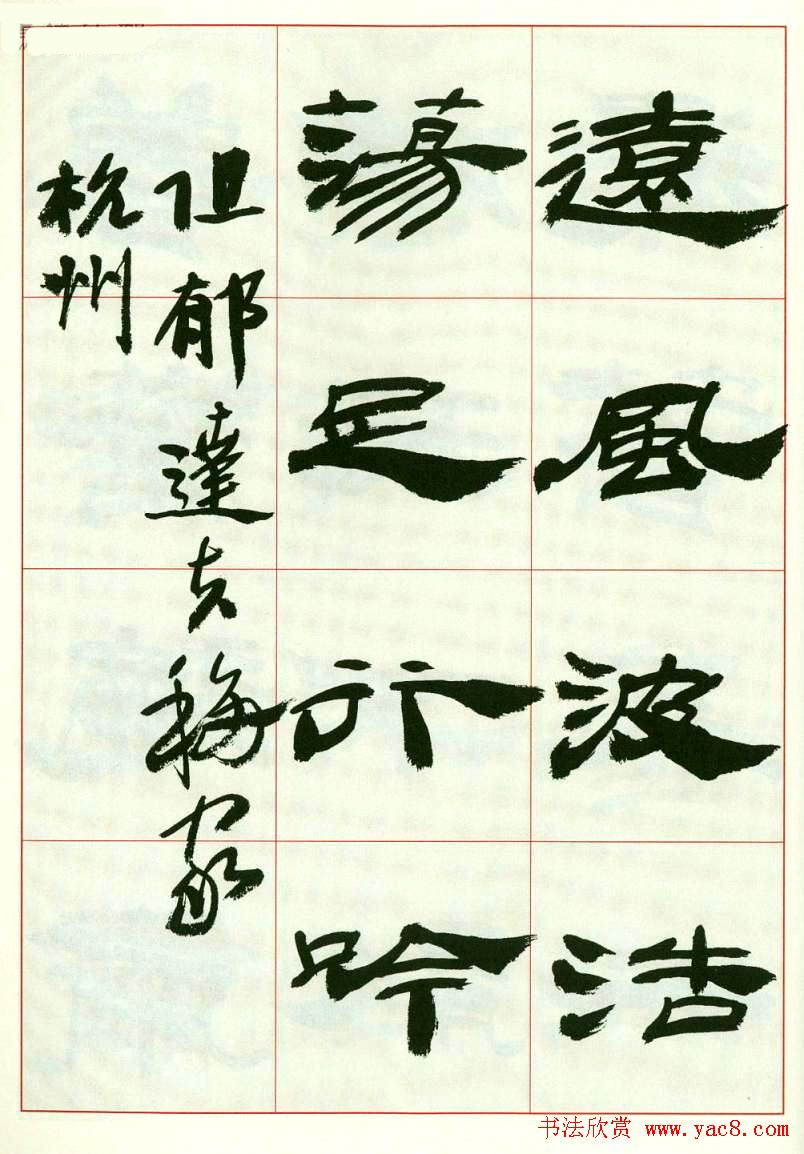 遠風波浩
蕩足行吟
阻郁達夫移家
杭州
书法欣赏 www.yac8.com